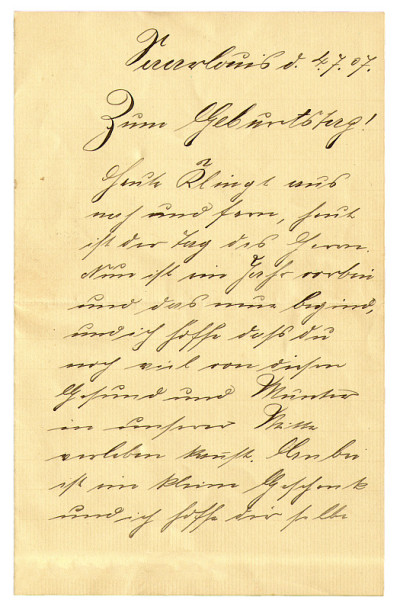 Saarlouis d. 4.7.07.
Zum Geburtstag!
Heute Klingt aus
nah und fern, heut
ist der Tag des Herrn.
Nun ist ein Jahr vorbei
und das neue begind,
und ich hoffe daß du
noch viel von diesen
Gesund und Munter
in unserer Mitte
verleben kannst. Anbei
ist ein kleine Geschenk
und ich hoffe dir selbe